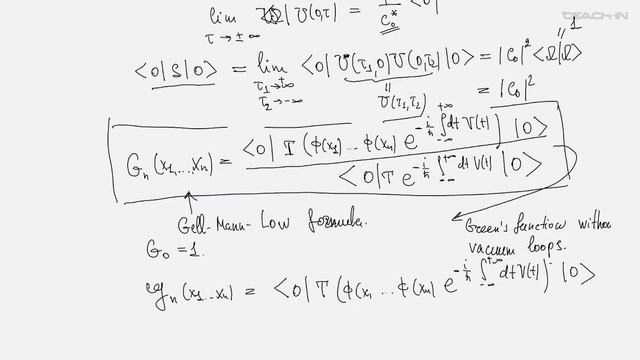 lim <Ω| U(0,τ) = 1/C₀* <0|
τ→±∞
TEACH-IN
1
<0|S|0> = lim <0| U(τ₁,0) U(0,τ₂) |0> = |C₀|² <Ω|Ω>
τ₁→+∞
τ₂→-∞
U(τ₁,τ₂)
= |C₀|²
Gₙ(x₁,...,xₙ) = <0| T (ϕ(x₁)... ϕ(xₙ) e^{-i/ħ ∫_{-∞}^{+∞} dt V(t)}) |0> / <0|T e^{-i/ħ ∫_{-∞}^{+∞} dt V(t)} |0>
Gell-Mann-Low formula.
Green's function without
vacuum loops.
G₀ = 1.
𝒢ₙ(x₁...xₙ) = <0| T (ϕ(x₁ ... ϕ(xₙ) e^{-i/ħ ∫_{-∞}^{+∞} dt V(t)}) |0>